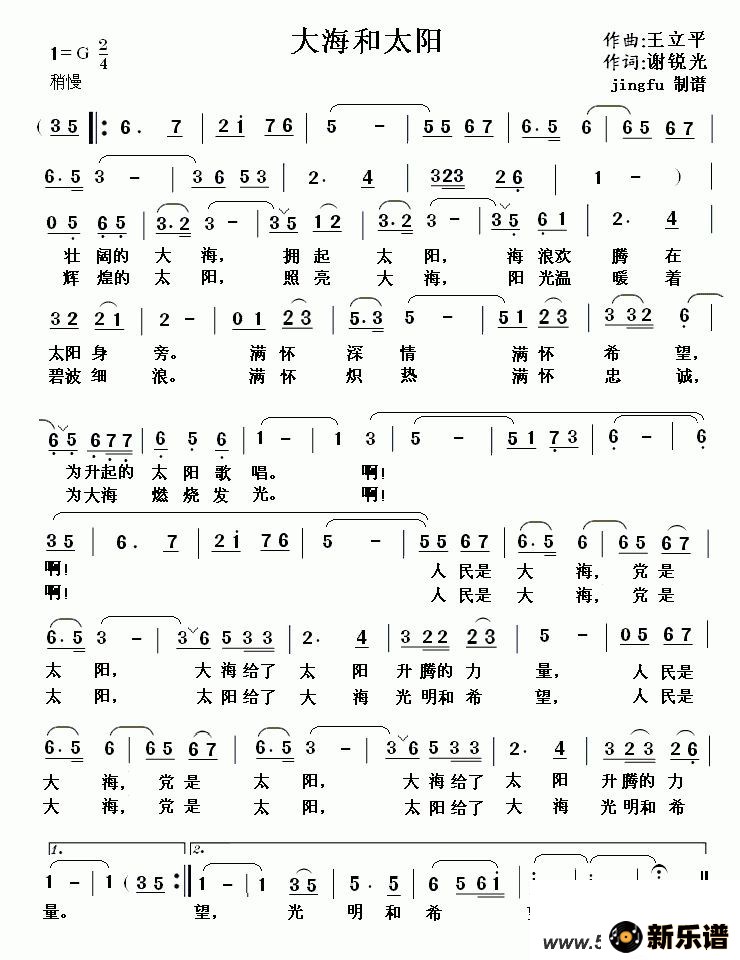 大海和太阳
1=G 2/4
作曲:王立平
作词:谢锐光
稍慢
jingfu 制谱
( 3 5 ‖: 6. 7 | 2 i 7 6 | 5 - | 5 5 6 7 | 6. 5 6 | 6 5 6 7 |
6. 5 3 - | 3 6 5 3 | 2. 4 | 3 2 3 2 6 | 1 - ) |
0 5 6 5 | 3. 2 3 - | 3 5 1 2 | 3. 2 3 - | 3 5 6 1 | 2. 4 |
壮阔的 大 海, 拥起 太 阳, 海浪欢 腾在
辉煌的 太 阳, 照亮 大 海, 阳光温 暖着
3 2 2 1 | 2 - | 0 1 2 3 | 5. 3 5 - | 5 1 2 3 | 3 3 2 6 |
太阳身 旁。 满怀 深 情 满怀 希 望,
碧波细 浪。 满怀 炽 热 满怀 忠 诚,
6 5 6 7 7 | 6 5 6 | 1 - | 1 3 | 5 - | 5 1 7 3 | 6 - 6
为升起的 太 阳 歌 唱。 啊!
为大海 燃 烧 发 光。 啊!
3 5 | 6. 7 | 2 i 7 6 | 5 - | 5 5 6 7 | 6. 5 6 | 6 5 6 7 |
啊! 人民是 大 海, 党是
啊! 人民是 大 海, 党是
6. 5 3 - | 3 6 5 3 3 | 2. 4 | 3 2 2 2 3 | 5 - | 0 5 6 7 |
太 阳, 大海给了 太 阳 升腾的力 量, 人民是
太 阳, 太阳给了 大 海 光明和希 望, 人民是
6. 5 6 | 6 5 6 7 | 6. 5 3 - | 3 6 5 3 3 | 2. 4 | 3 2 3 2 6 |
大 海, 党是 太 阳, 大海给了 太 阳 升腾的力
大 海, 党是 太 阳, 太阳给了 大 海 光明和希
1. 2.
1 - | 1 ( 3 5 :‖ 1 - | 1 3 5 | 5. 5 | 6 5 6 i |
量。 望, 光 明 和 希
www.5
新乐谱